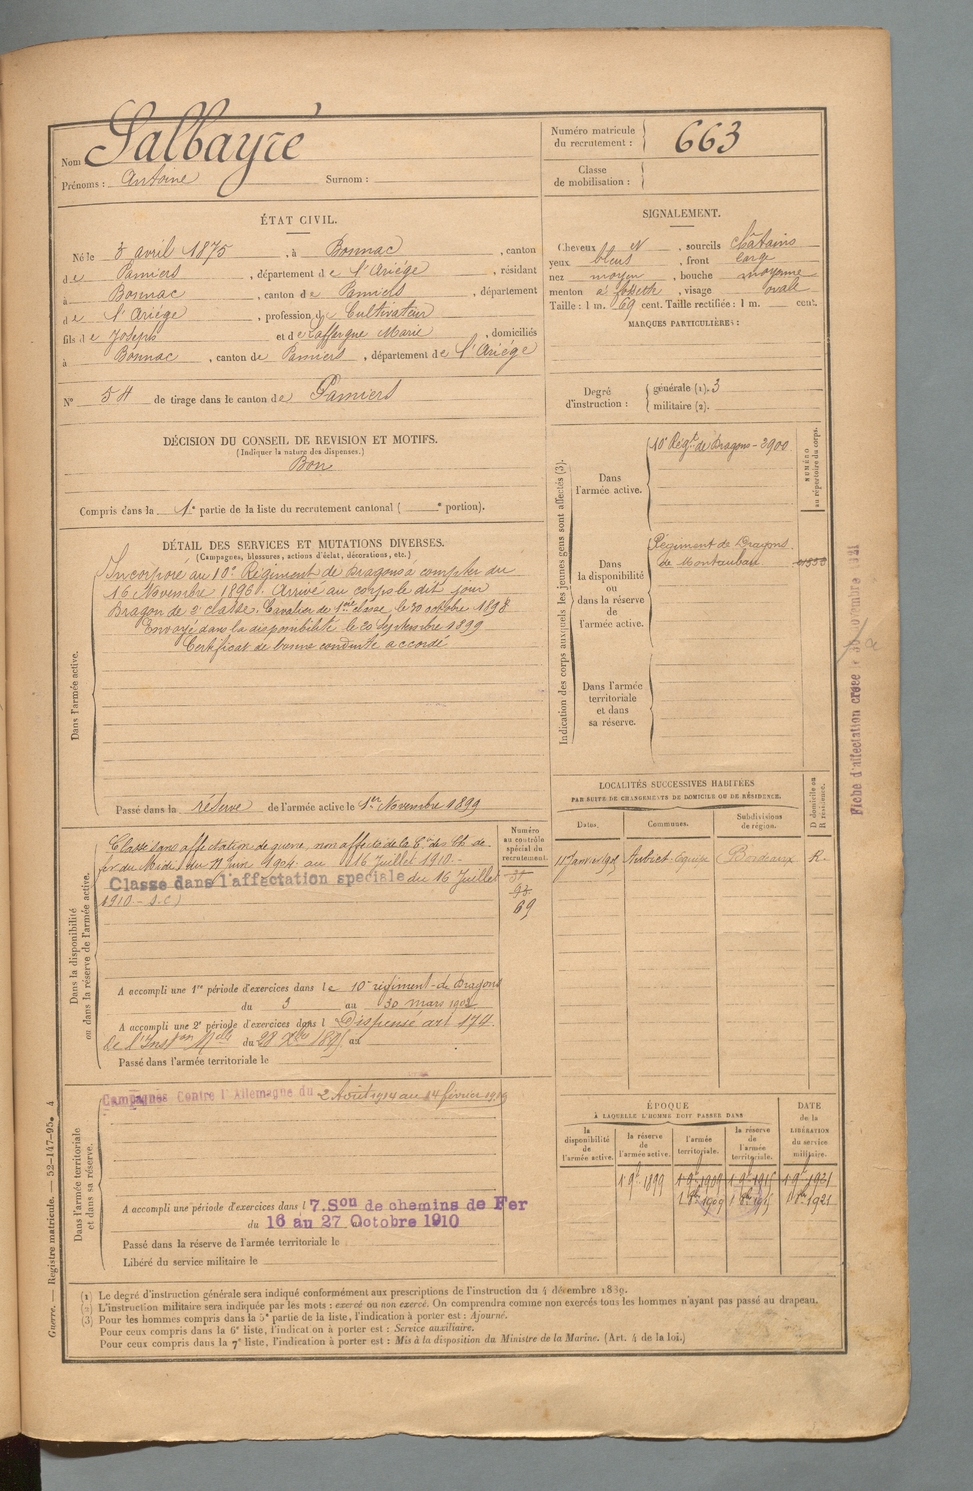 Nom Salbayre
Prénoms : Antoine Surnom :
Numéro matricule du recrutement : 663
Classe de mobilisation :
ÉTAT CIVIL.
Né le 3 avril 1875, à Bonnac, canton
de Pamiers, département de l'Ariége, résidant
à Bonnac, canton de Pamiers, département
de l'Ariège, profession de Cultivateur
fils de Joseph et de Laffargue Marie, domiciliés
à Bonnac, canton de Pamiers, département de l'Ariége
N° 54 de tirage dans le canton de Pamiers
DÉCISION DU CONSEIL DE REVISION ET MOTIFS.
(Indiquer la nature des dispenses.)
Bon
Compris dans la 1e partie de la liste du recrutement cantonal ( e portion).
SIGNALEMENT.
Cheveux N, sourcils châtains
yeux bleus, front large
nez moyen, bouche moyenne
menton à, visage ovale
Taille : 1 m. 69 cent. Taille rectifiée : 1 m. cent.
MARQUES PARTICULIÈRES :
Degré d'instruction : générale (1). 3
militaire (2).
DÉTAIL DES SERVICES ET MUTATIONS DIVERSES.
(Campagnes, blessures, actions d'éclat, décorations, etc.)
Dans l'armée active.
Incorporé au 10e Régiment de Dragons à compter du
16 Novembre 1896. Arrivé au corps le dit jour
Dragon de 2e classe. Cavalier de 1ère classe le 30 octobre 1898
Envoyé dans la disponibilité le 20 septembre 1899
Certificat de bonne conduite accordé
Passé dans la réserve de l'armée active le 1er Novembre 1899
Indication des corps auxquels les jeunes gens sont affectés (3).
NUMÉRO au répertoire du corps.
Dans l'armée active.
10e Régt de Dragons - 3900
Dans la disponibilité ou dans la réserve de l'armée active.
Régiment de Dragons
de Montauban
Dans l'armée territoriale et dans sa réserve.
Fiche d'affectation créée le
Dans la disponibilité ou dans la réserve de l'armée active.
Numéro au contrôle spécial du recrutement.
Classé sans affectation de guerre, non affecté de la des Ch. de
fer du Midi du 11 Juin 1904 au 16 Juillet 1910.-
Classé dans l'affectation spéciale du 16 Juillet
1910 - S.C)
69
A accompli une 1re période d'exercices dans le 10e régiment de Dragons
du 3 au 30 mars 1902
A accompli une 2e période d'exercices dans l Dispensé art 174
de l'Inston Melle du 28 Xbre 1895 au
Passé dans l'armée territoriale le
LOCALITÉS SUCCESSIVES HABITÉES
PAR SUITE DE CHANGEMENTS DE DOMICILE OU DE RÉSIDENCE.
Dates. Communes. Subdivisions de région. D domicile ou R résidence.
Bordeaux R.
Dans l'armée territoriale et dans sa réserve.
Campagnes Contre l'Allemagne du 2 Août 1914 au 14 février 1919
A accompli une période d'exercices dans l 7. Son de chemins de Fer
du 16 au 27 Octobre 1910
Passé dans la réserve de l'armée territoriale le
Libéré du service militaire le
ÉPOQUE
À LAQUELLE L'HOMME DOIT PASSER DANS
la disponibilité de l'armée active. la réserve de l'armée active. l'armée territoriale. la réserve de l'armée territoriale.
DATE de la LIBÉRATION du service militaire.
1 9bre 1899 1 9bre 1909 1 9bre 1915 1 9bre 1921
(1) Le degré d'instruction générale sera indiqué conformément aux prescriptions de l'instruction du 4 décembre 1889.
(2) L'instruction militaire sera indiquée par les mots : exercé ou non exercé. On comprendra comme non exercés tous les hommes n'ayant pas passé au drapeau.
(3) Pour les hommes compris dans la 5e partie de la liste, l'indication à porter est : Ajourné.
Pour ceux compris dans la 6e liste, l'indication à porter est : Service auxiliaire.
Pour ceux compris dans la 7e liste, l'indication à porter est : Mis à la disposition du Ministre de la Marine. (Art. 4 de la loi.)
Guerre. — Registre matricule. — 52-147-95. 4